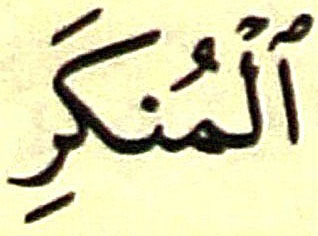 ٱلْمُنكَرِ